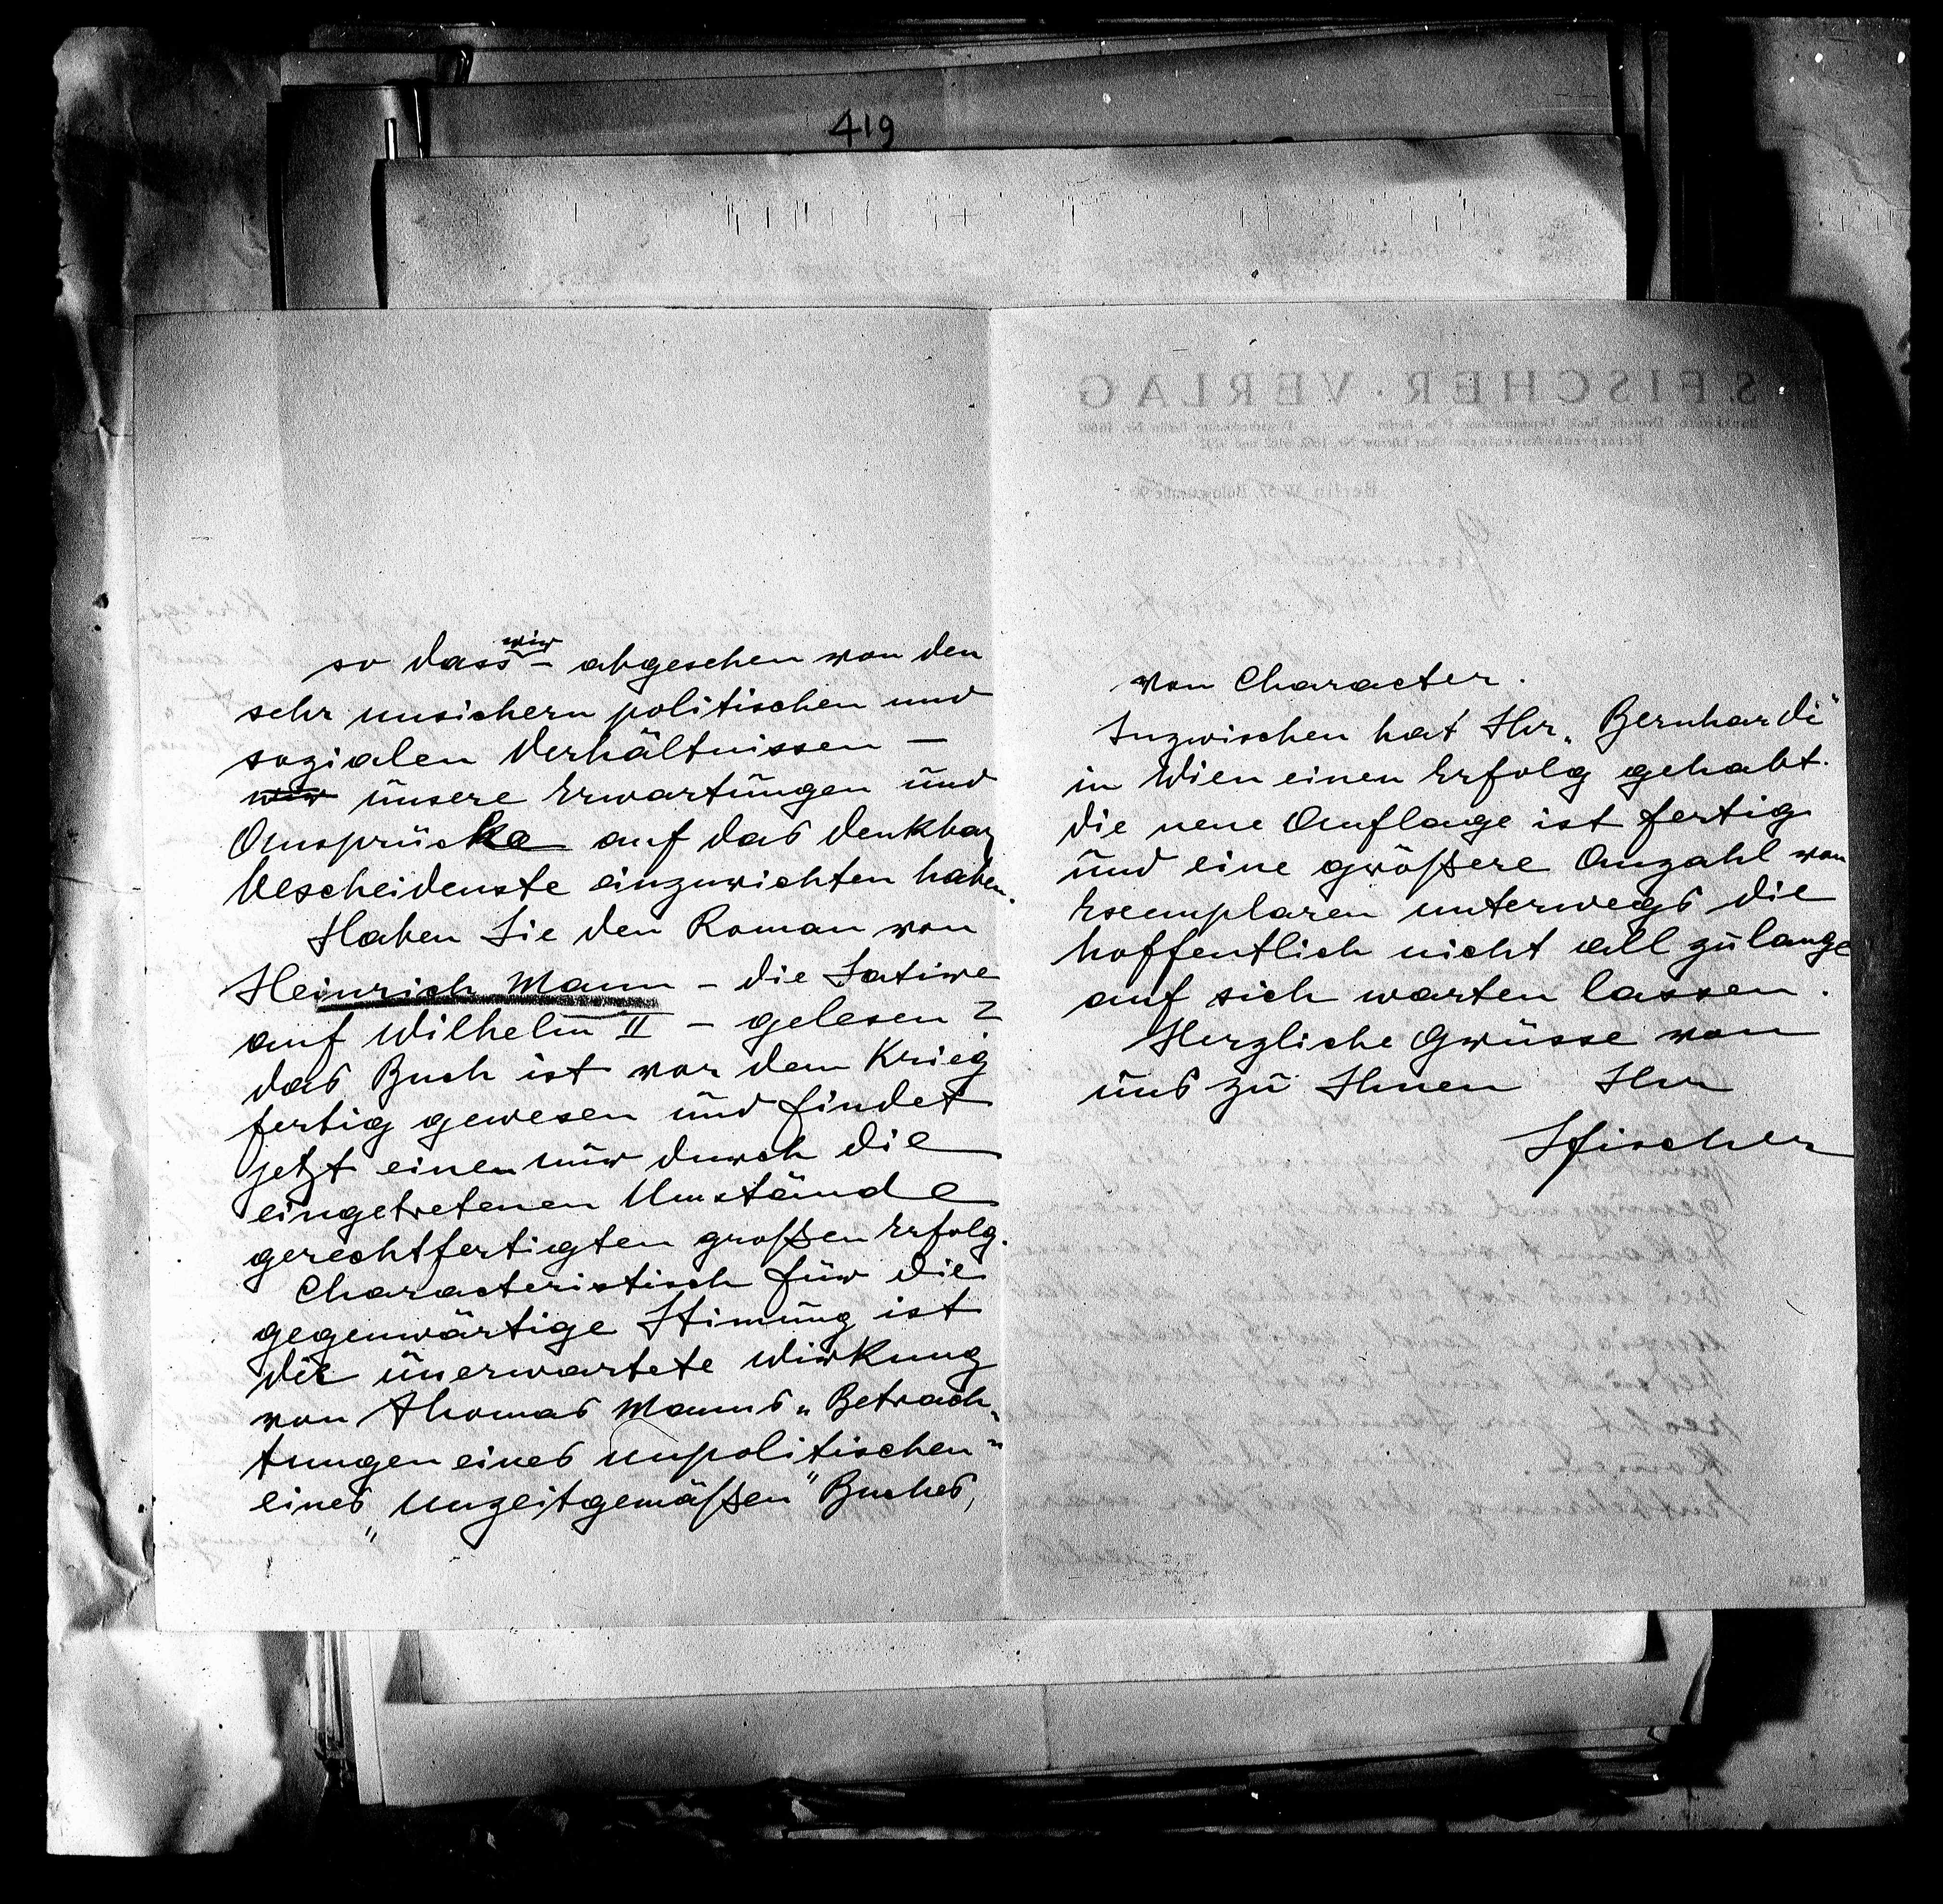 419
so dass wir – abgesehen von den
sehr unsichern politischen und
sozialen Verhältnissen –
wir unsere Erwartungen und
Ansprücke auf das denkbar
bescheidenste einzurichten haben.
Haben Sie den Roman von
Heinrich Mann – die Satire
auf Wilhelm II – gelesen?
das Buch ist vor dem Krieg
fertig gewesen und findet
jetzt einen nur durch die
eingetretenen Umstände
gerechtfertigten großen Erfolg.
Characteristisch für die
gegenwärtige Stimung ist
die unerwartete Wirkung
von Thomas Manns „Betrach-
tungen eines unpolitischen"
eines „unzeitgemäßen" Buches,
S. FISCHER · VERLAG
von Character.
Inzwischen hat Ihr „Bernhardi"
in Wien einen Erfolg gehabt.
die neue Auflage ist fertig
und eine größere Anzahl von
Exemplaren unterwegs die
hoffentlich nicht all zu lange
auf sich warten lassen.
Herzliche Grüsse von
uns zu Ihnen Ihr
SFischer